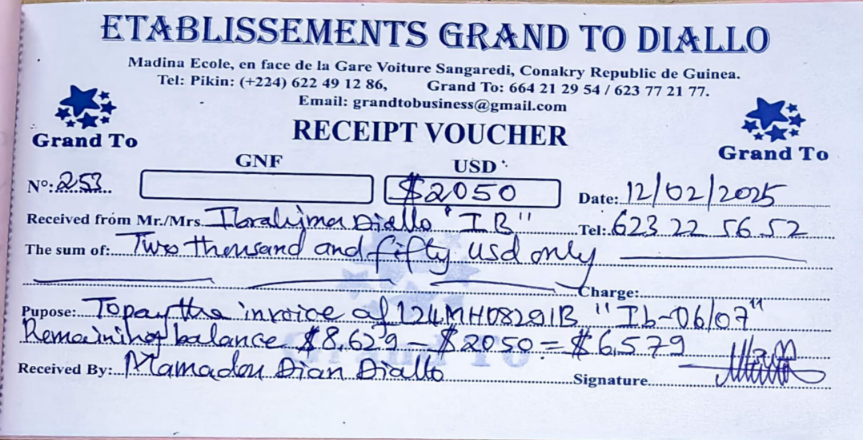 ETABLISSEMENTS GRAND TO DIALLO
Madina Ecole, en face de la Gare Voiture Sangaredi, Conakry Republic de Guinea.
Tel: Pikin: (+224) 622 49 12 86, Grand To: 664 21 29 54 / 623 77 21 77.
Email: grandtobusiness@gmail.com
Grand To RECEIPT VOUCHER Grand To
GNF USD
N°: 253 $2050 Date: 12/02/2025
Received from Mr./Mrs. Ibrahima Diallo "IB" Tel: 623 22 56 52
The sum of: Two thousand and fifty usd only
Charge:
Pupose: To pay the invoice of 124MH08291B "Ib-06/07"
Remaining balance $8,629 - $2050 = $6,579
Received By: Mamadou Dian Diallo Signature